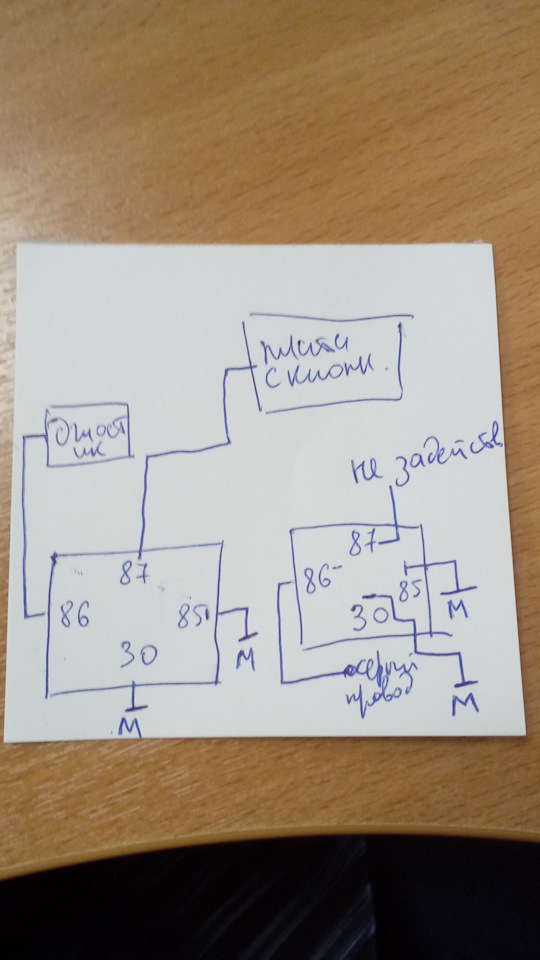 плата
с кнопк.
Отмост
ик
не задейств
87
86
85
30
М
М
87
86-
85
30
М
серый
провод
М